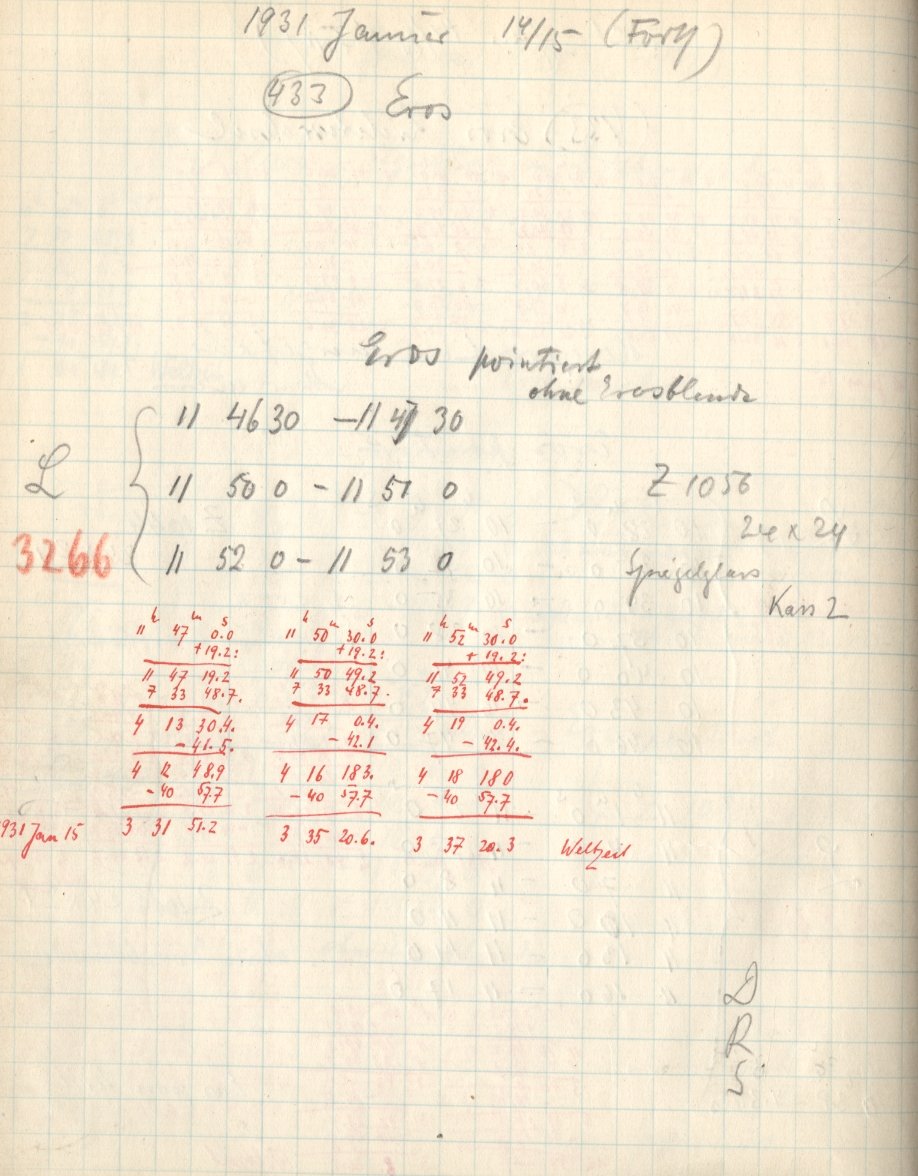 1931 Januar 14/15 (Forts)
433 Eros
Eros pointiert
ohne Erosblende
11 46 30 – 11 47 30
L 11 50 0 – 11 51 0 Z 1056
24 x 24
3266 11 52 0 – 11 53 0 Spiegelglas
Kass 2
h m s h m s h m s
11 47 0.0 11 50 30.0 11 52 30.0
+19.2: +19.2: +19.2:
11 47 19.2 11 50 49.2 11 52 49.2
7 33 48.7. 7 33 48.7. 7 33 48.7.
4 13 30.4. 4 17 0.4. 4 19 0.4.
– 41.5. – 42.1 – 42.4.
4 12 48.9 4 16 18 3. 4 18 18 0
– 40 57.7 – 40 57.7 – 40 57.7
1931 Jan 15 3 31 51.2 3 35 20.6. 3 37 20.3 Weltzeit
D
R
S